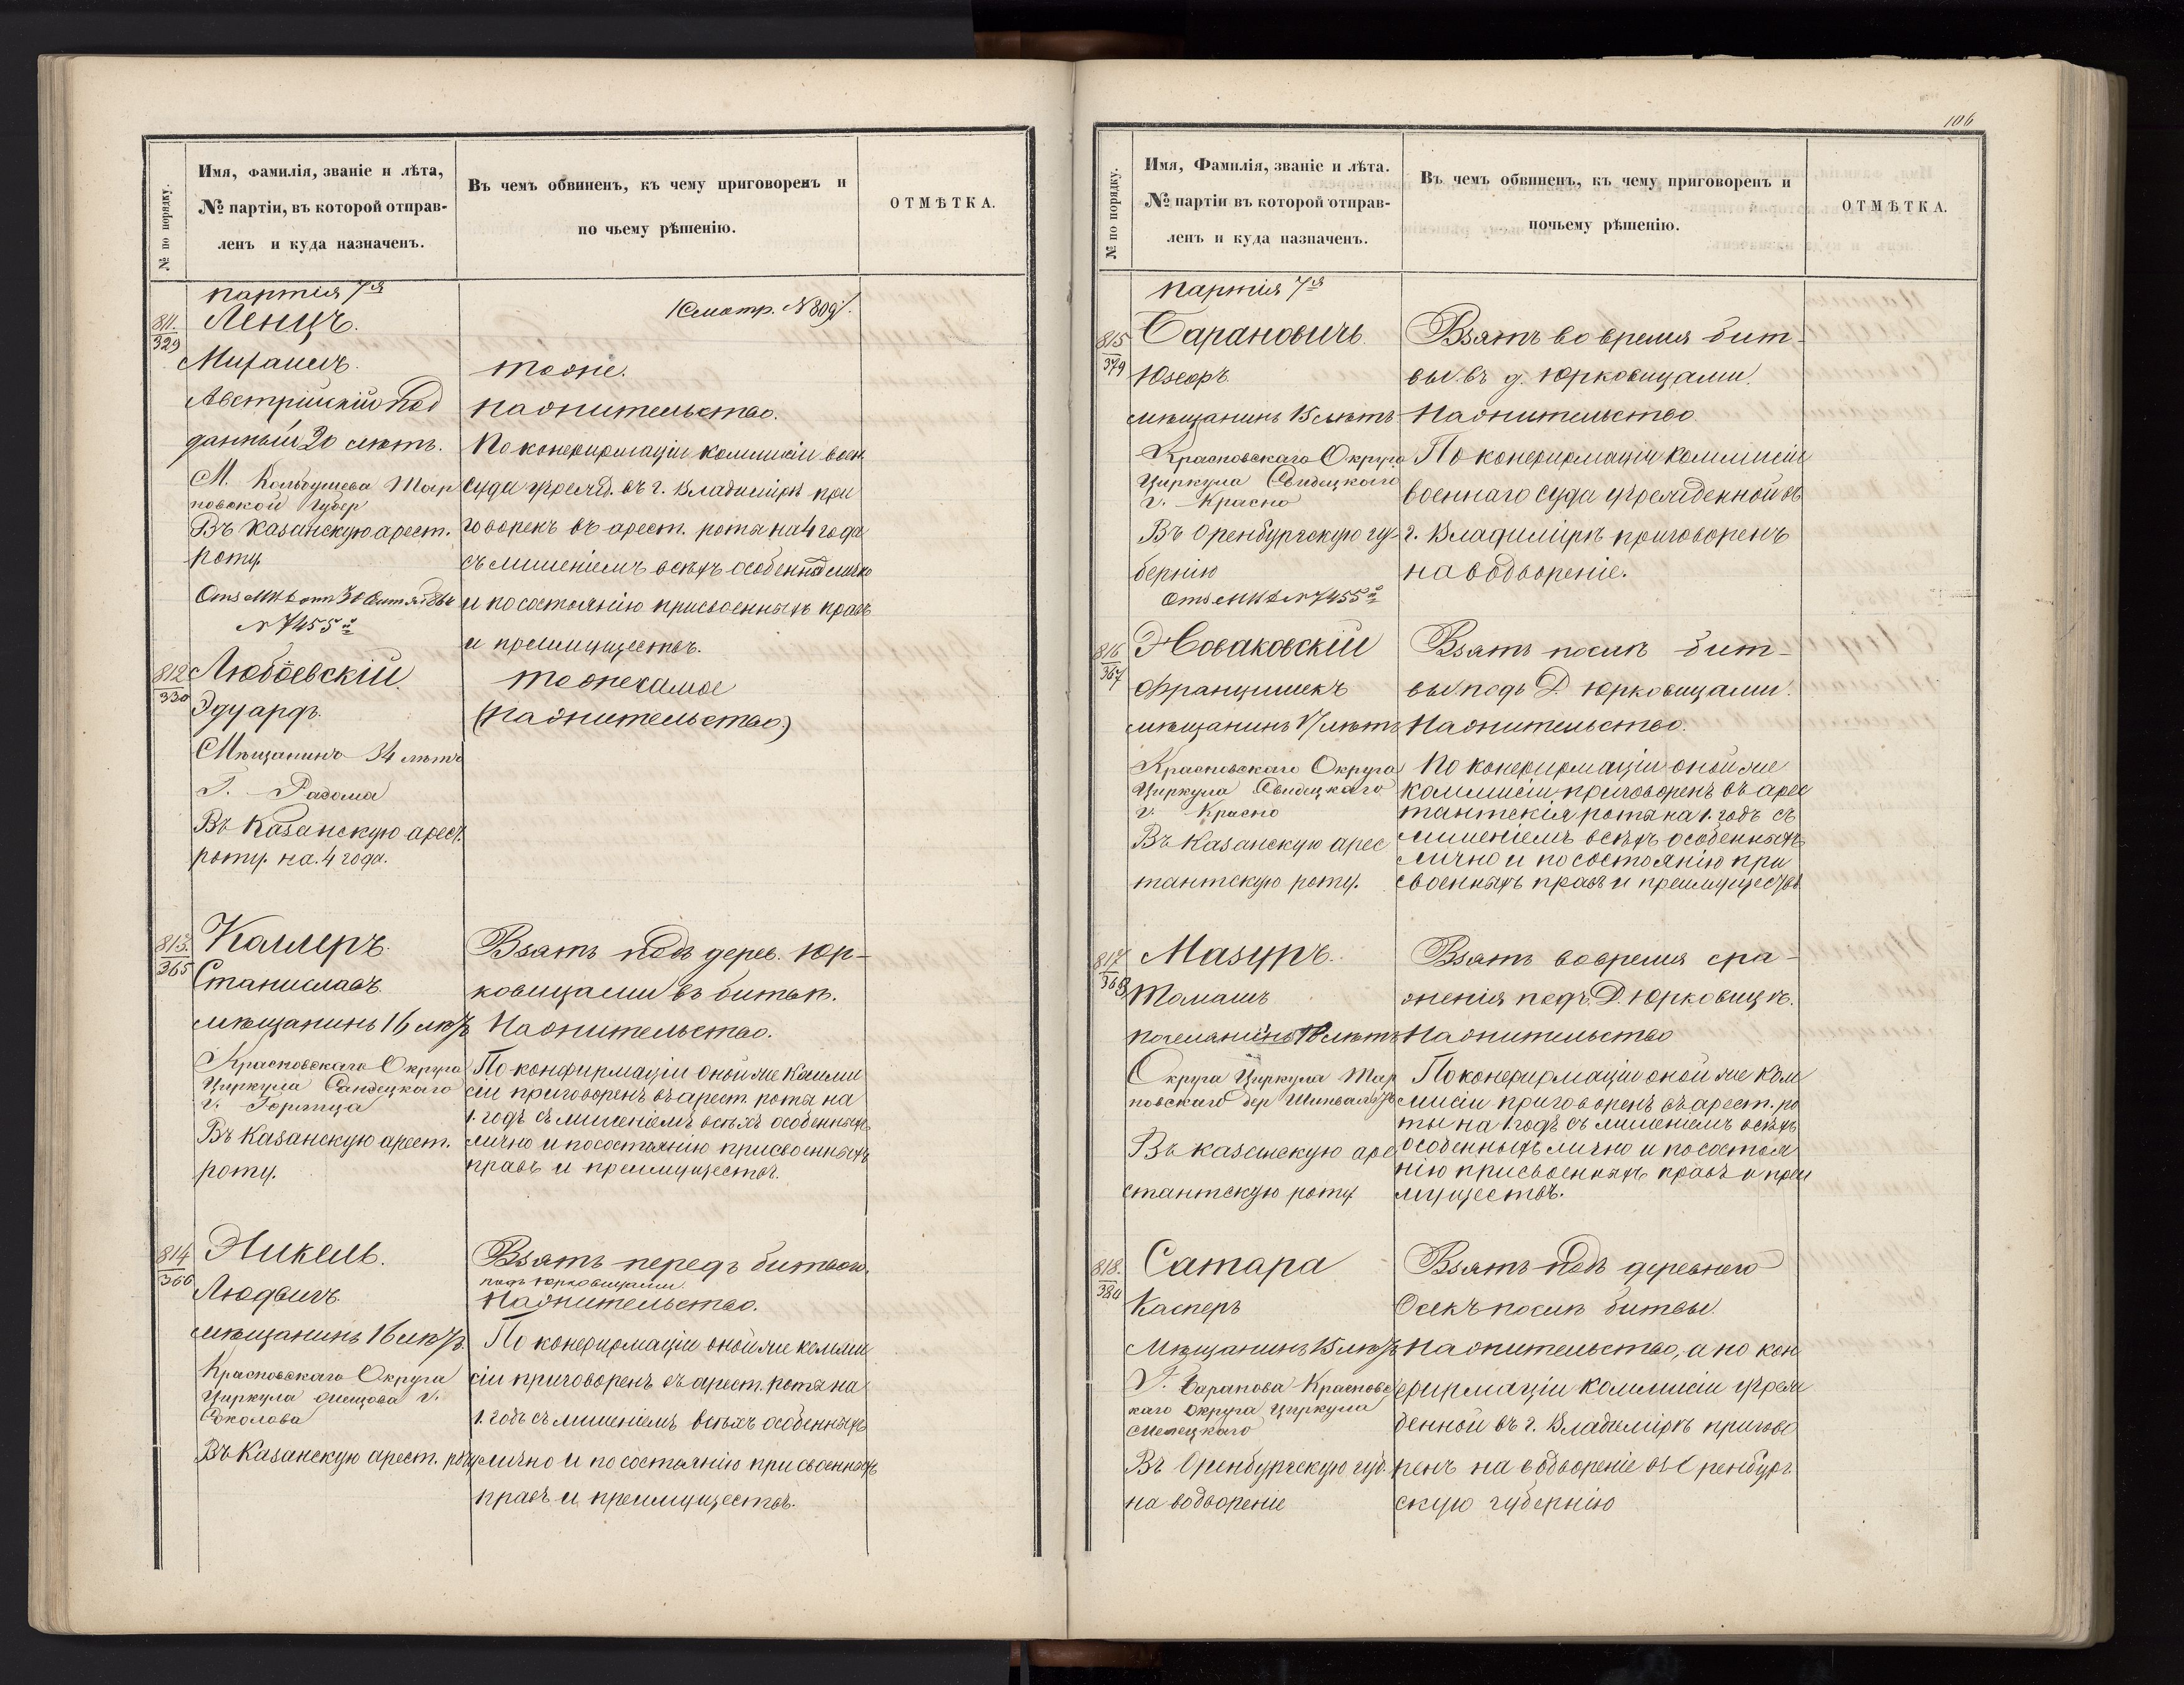 № по порядку.
Имя, фамилія, званіе и лѣта,
№ партіи, въ которой отправ-
ленъ и куда назначенъ.
Въ чемъ обвиненъ, къ чему приговоренъ и
по чьему рѣшенію.
ОТМѢТКА.
партія 7я
(Смотр. N 809).
811.
329
Ленцъ.
Михаилъ.
Австрійскій под
данный 20 лѣтъ.
М. Кольбушева Тар
новской Губер
Въ Казанскую арест.
роту
N 7455
тоже.
На жительство.
По конфирмаціи коммисіи воен.
суда учрежд. въ г. Владимірѣ при
говоренъ въ арест. роты на 4 года
съ лишеніемъ всѣхъ особенно лично
и по состоянію присвоенныхъ правъ
и преимуществъ.
812
330
Любоевскій.
Эдуардъ.
Мѣщанинъ 34 лѣтъ
Г. Радома
Въ Казанскую арест.
роту на 4 года.
тоже самое
(На жительство)
813.
365
Каллеръ.
Станиславъ.
мѣщанинъ 16 лѣтъ
Красновскаго Округа
Циркула Сандецкаго
г. Горлица
Въ Казанскую арест.
роту.
Взятъ подъ дерев. Юр-
ковицами въ битвѣ.
На жительство.
По конфирмаціи оной же Комми
сіи приговоренъ въ арест. роты на
1. годъ съ лишеніемъ всѣхъ особенныхъ
лично и по состоянію присвоенныхъ
правъ и преимуществъ.
814
366
Никель.
Людвигъ.
мѣщанинъ 16 лѣтъ.
Красновскаго Округа
Циркула г.
Соколова
Въ Казанскую арест. роту
Взятъ передъ битвою.
подъ Юрковицами
На жительство.
По конфирмаціи оной же комми
сіи приговоренъ въ арест. роты на
1. годъ съ лишеніемъ всѣхъ особенныхъ
лично и по состоянію присвоенныхъ
правъ и преимуществъ.
106
№ по порядку.
Имя, Фамилія, званіе и лѣта.
№ партіи въ которой отправ-
ленъ и куда назначенъ.
Въ чемъ обвиненъ, къ чему приговоренъ и
почьему рѣшенію.
ОТМѢТКА.
партія 7я
815
379
Барановичъ.
Юзефъ.
мѣщанинъ 15 лѣтъ
Красновскаго Округа
Циркула Свидецкаго
г. Красно
Въ Оренбургскую гу-
бернію
N 7455
Взятъ во время бит-
вы въ д. Юрковицами.
На жительство.
По конфирмаціи Коммисіи
военнаго суда учрежденной въ
г. Владимірѣ приговоренъ
на водвореніе.
816
367
Новаковскій
Францишекъ
мѣщанинъ 17 лѣтъ
Красновскаго Округа
Циркула Свидецкаго
г. Красно
Въ Казанскую арес
тантскую роту.
Взятъ послѣ бит-
вы подъ Д. Юрковицами.
На жительство.
По конфирмаціи оной же
коммисіи приговоренъ въ арес
тантскія роты на 1. годъ съ
лишеніемъ всѣхъ особенныхъ
лично и по состоянію при
своенныхъ правъ и преимуществъ
817
368
Мазуръ.
Томашъ
поселянинъ 18 лѣтъ
Округа Циркула Тар
новскаго дер
Въ Казанскую аре
стантскую роту
Взятъ вовремя сра-
женія подъ Д. Юрковицъ.
На жительство
По конфирмаціи оной же Ком
мисіи приговоренъ въ арест. ро
ты на 1 годъ съ лишеніемъ всѣхъ
особенныхъ лично и по состоя
нію присвоенныхъ правъ и преи
муществъ.
818.
380
Сатара
Касперъ
Мѣщанинъ 15 лѣтъ
Г. Баранова Красновс
каго Округа Циркула
Въ Оренбургскую губ.
на водвореніе
Взятъ подъ деревнею
Осекъ послѣ битвы.
На жительство, а по кон
фирмаціи коммисіи учреж
денной въ г. Владимірѣ пригово
ренъ на водвореніе въ Оренбург
скую губернію